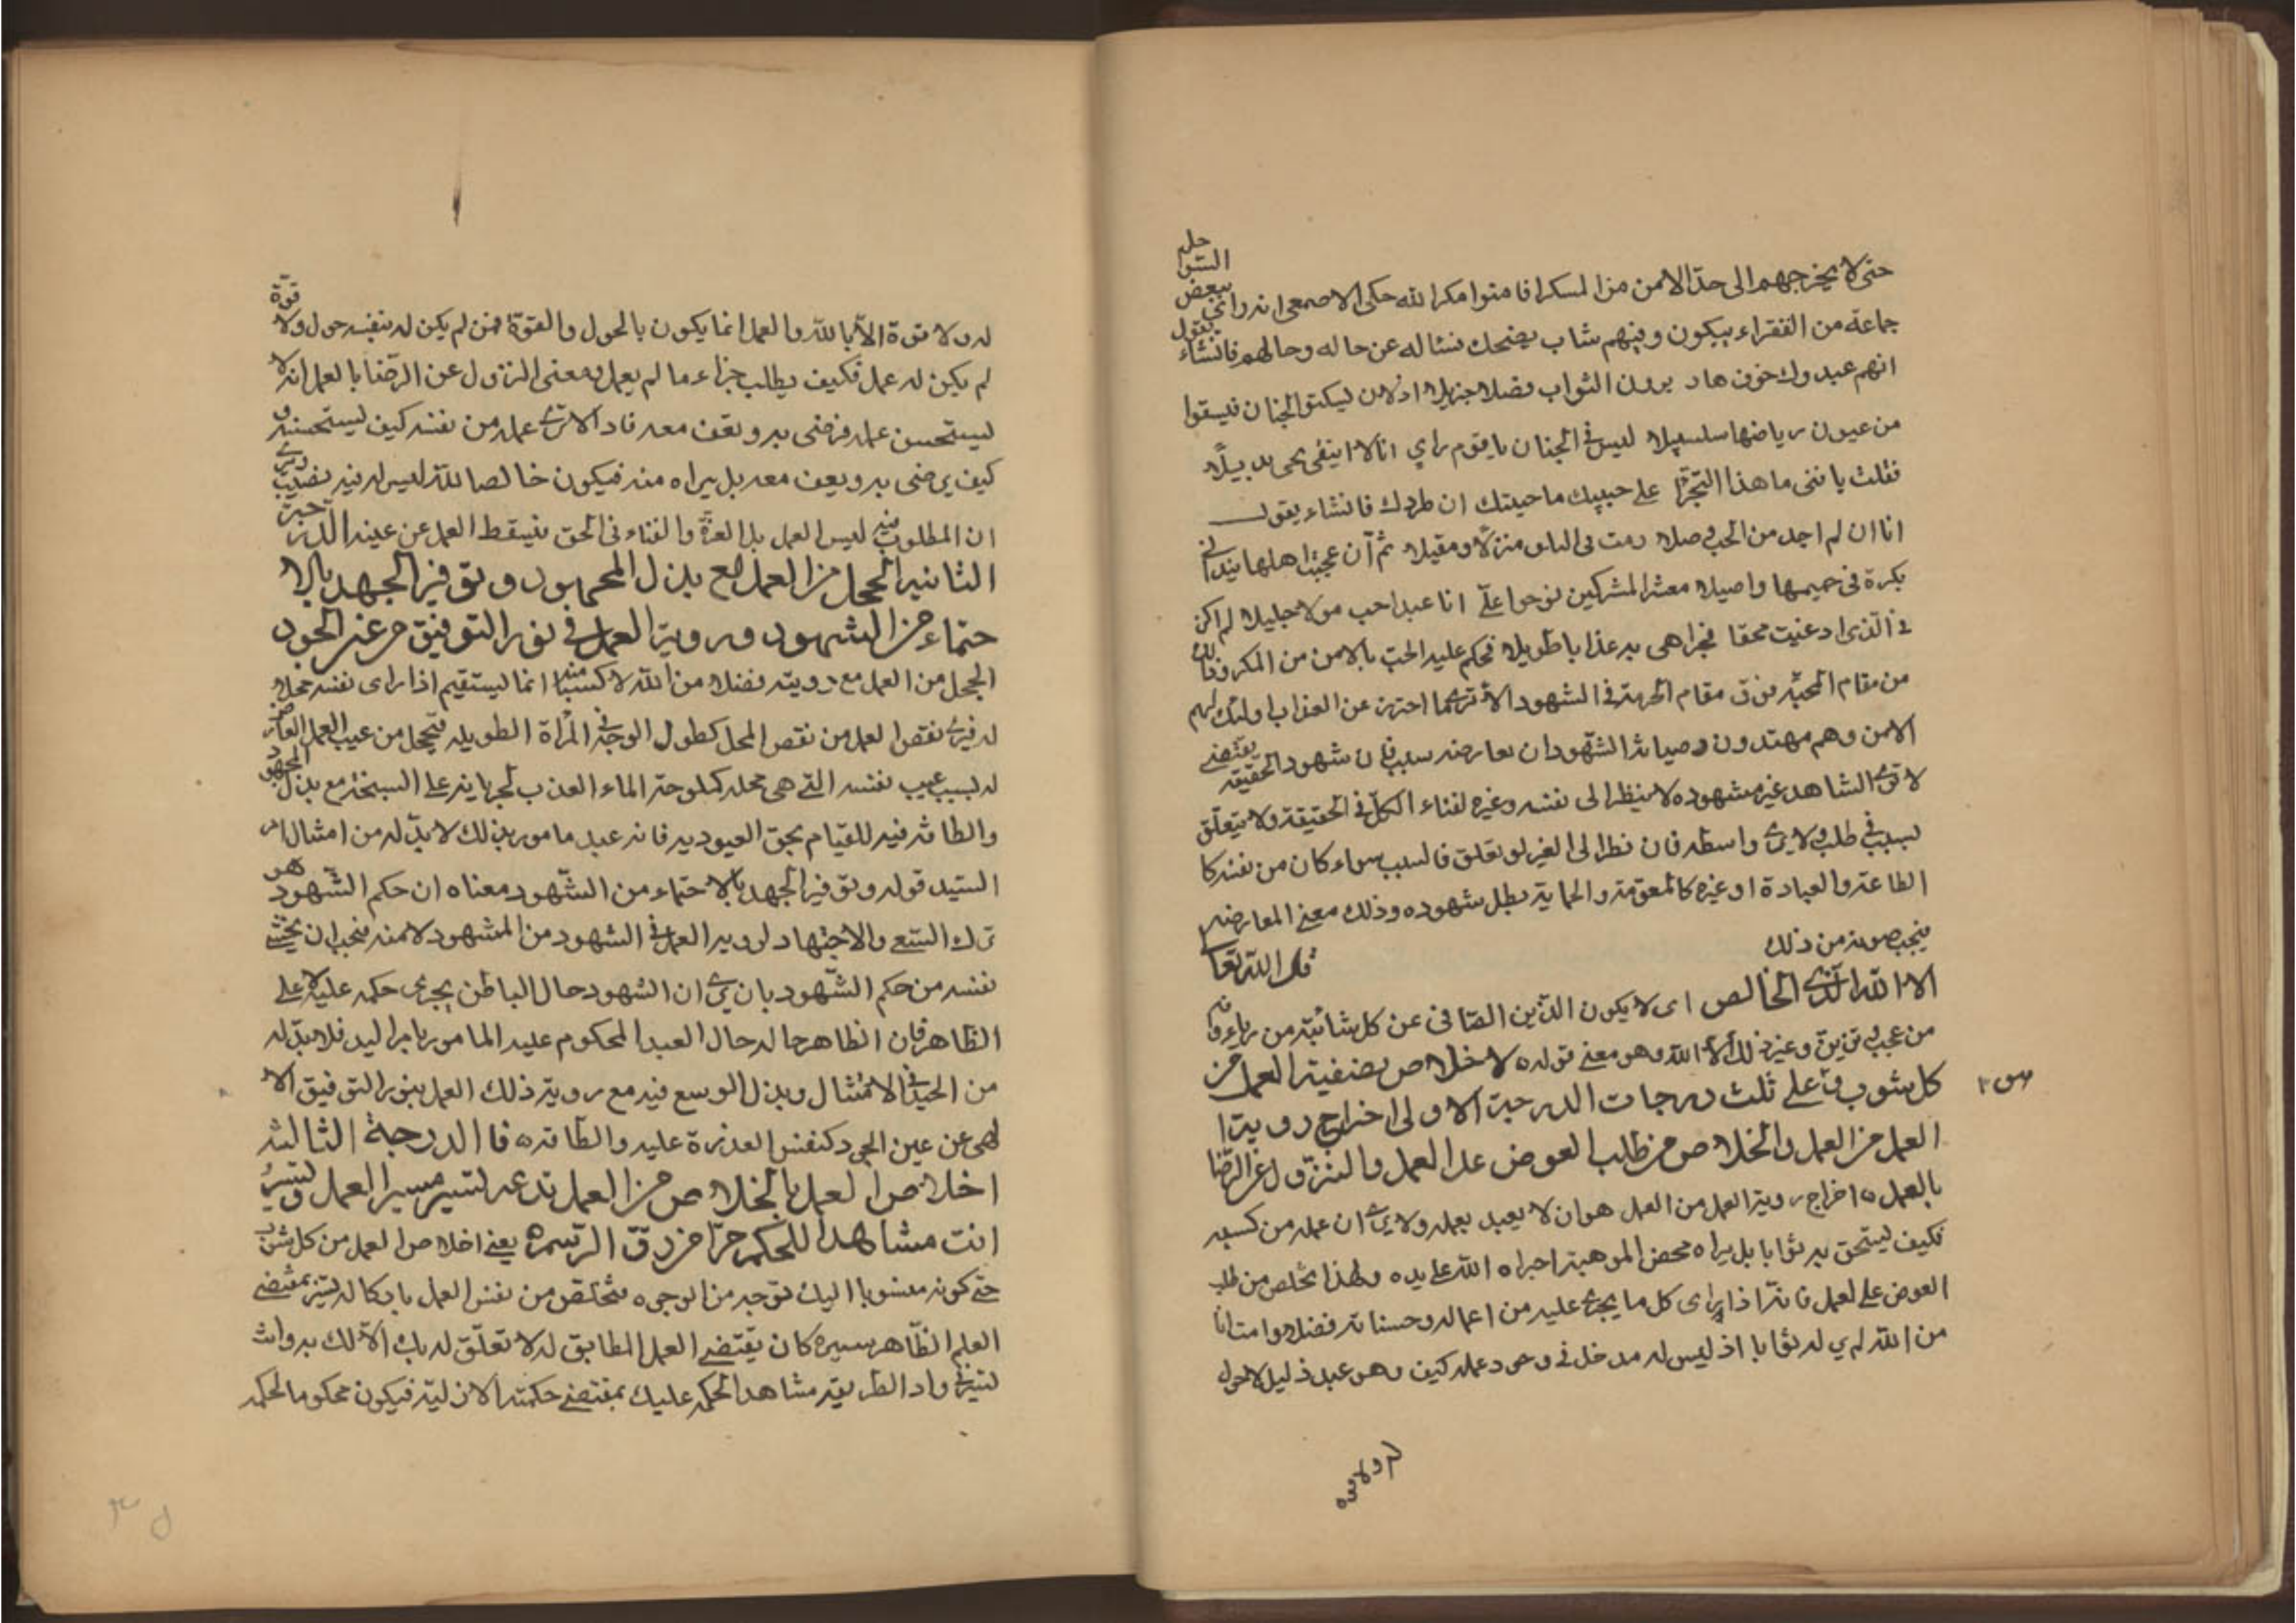 حتى لا يخرجهم الى حدّ الامن من المسكر فامنوا مكر الله حكى الاصمعى انه راى ببعض السواحل
جماعة من الفقراء يبكون وفيهم شاب يضحك نساله عن حاله وحالهم فانشاء يقول
انهم عبدوك خوف هاد يرون الثواب فضلا جزيلا او لان يسكنوا الجنان فيسقوا
من عيون رياضها سلسبيلا ليس فى الجنان يا قوم راي انا لا ابتغى بحبى بديلًا
فقلت يا فتى ما هذا التجرّا على حبيبك ما حيلتك ان طردك فانشاء يقول
انا ان لم اجد من الحب وصلا رمت فى النار منزلًا ومقيلا ثم ان عجبت اهلها بندائى
بكرة فى حميمها واصيلا معشر المشركين نوحوا علىّ انا عبد احب مولا جليلا لم اكن
فى الذى ادعيت محقا فجزاهى به عذابا طويلا فحكم عليه الحبّ بالامن من المكر وقال
من مقام المحبّة فوق مقام الحرمة فى الشهود الا ترى كما احترز عن العذاب اولئك لهم
الامن وهم مهتدون وصيانة الشهود ان يعارضه سبب فان شهود الحقيقة يقتضى
لا ترى الشاهد غير مشهوده لا ينظر الى نفسه وغيره لفناء الكلّ فى الحقيقة ولا يتعلّق
بسبب فى طلب ولا يرى واسطة فان نظر الى الغير او تعلق فالسبب سواء كان من نفسه كا
الطاعة والعبادة او غيره كالمعونة والحماية بطل شهوده وذلك معنى المعارضة
فيجب صونه من ذلك
قال الله تعالى
الا لله الدّين الخالص اى لا يكون الدّين الصّافى عن كل شائبة من رياء وفيه
من عجب وتزين وغير ذلك الا لله وهو معنى قوله ه الاخلاص تصفية العمل من
كل شوب وهو على ثلث درجات الدرجة الاولى اخراج روية
العمل من العمل والخلاص من طلب العوض على العمل والنزول عن الرّضا
بالعمل ه اخراج روية العمل من العمل هو ان لا يعبد بعمله ولا يرى ان عمله من كسبه
فكيف يستحق به ثوابا بل يراه محض الموهبة اجراه الله على يده ولهذا تخلص من طلب
العوض على العمل فانه اذا يراى كل ما يجرى عليه من اعماله وحسناته فضلا وامتنانا
من الله لم ير له ثوابا اذ ليس له مدخل فى وجود عمله كيف وهو عبد ذليل لا حول
له ولا قوة
له ولا قوة الا بالله والعمل انما يكون بالحول والقوة فمن لم يكن له بنفسه حول ولا قوة
لم يكن له عمل فكيف يطلب جزاء ما لم يعمل ومعنى النزول عن الرّضا بالعمل انه لا
يستحسن عمله فرضى به ويقف معه فاد الا ترى عمله من نفسه كيف يستحسنه و
كيف يرضى به ويقف معه بل يراه منه فيكون خالصا لله ليس له فيه نصيب ويرى
ان المطلوب منه ليس العمل بل العزة والفناء فى الحق فيسقط العمل عن عينه الدرجة
الثانية الخجل من العمل مع بذل المجهود وتوفير الجهد بالا
حتماء من الشهود ورؤية العمل فى نور التوفيق من عين الجود
الخجل من العمل مع رويته فضلا من الله لا كسبا منه انما يستقيم اذا راى نفسه محلا
له فيرى نقص العمل من نقص المحل كطول الوجه فى المرأة الطويلة فيخجل من عيب العمل العارض
له بسبب عيب نفسه التى هى محله كملوحة الماء العذب لجريانه على السبخة مع بذل المجهود
والطاقة فيه للقيام بحق العبودية فانه عبد مامور بذلك لا بدّ له من امتثال امر
السّيد قوله وتوفير الجهد بالاحتماء من الشّهود معناه ان حكم الشّهود هو
ترك السّعى والاجتهاد لروية العمل فى الشهود من المشهود لا منه فيجب ان يحتمى
نفسه من حكم الشّهود بان يرى ان الشهود حال الباطن يجرى حكمه عليه لا على
الظّاهر فان الظاهر حاله حال العبد المحكوم عليه المامور بامر اليد فلا بدّ له
من الجد فى الامتثال وبذل الوسع فيه مع روية ذلك العمل بنور التوفيق الا
لهى عن عين الجود كنفس القدرة عليه والطاقة ه فا الدرجة الثالثة
اخلاص العمل بالخلاص من العمل تدعه يسير مسير العمل وتسير
انت مشاهدا للحكم حرّا من رق الرّسم ه يعنى اخلاص العمل من كل شوب
حتى كونه منسوبا اليك بوجه من الوجوه فتخلص من نفس العمل بايكاله يسير بمقتضى
العلم الظّاهر سيره كان يقتضى العمل المطابق له لا تعلّق له بك ولا لك به وانت
تسير فى واد الطريقة مشاهد الحكم عليك بمقتضى حكمته الازلية فيكون محكوما لحكم